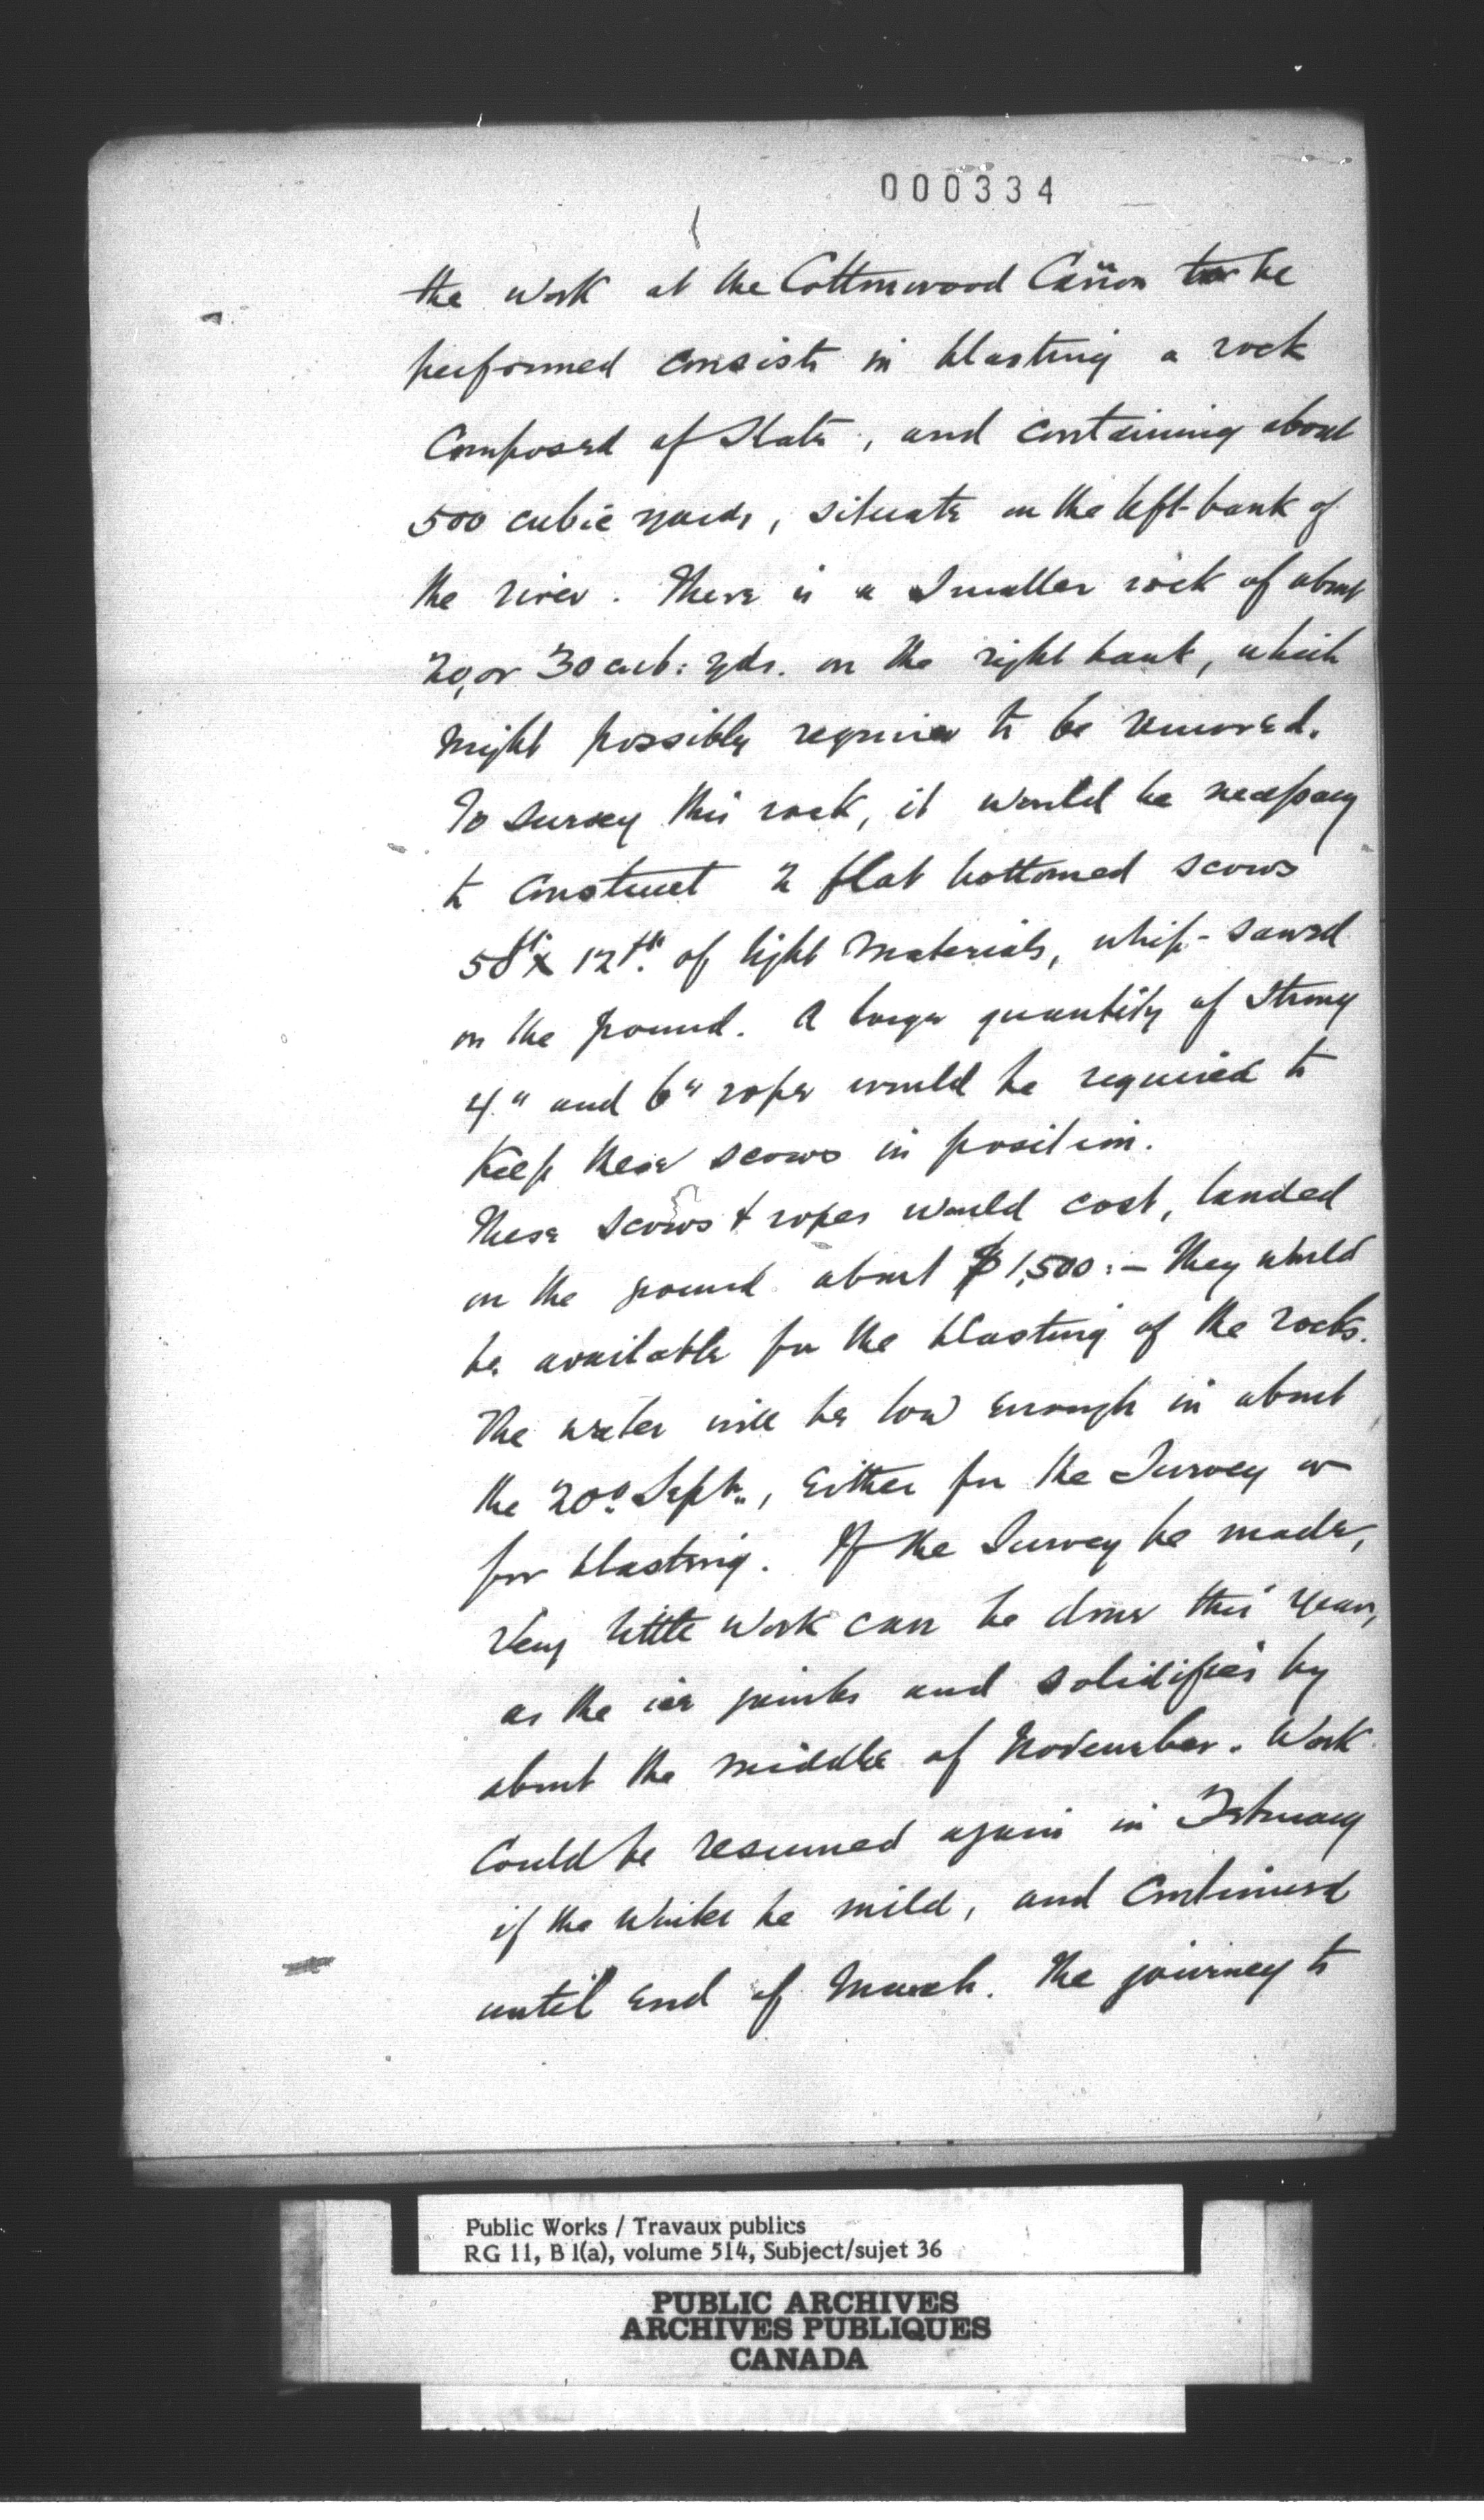 000334
the work at the Cottonwood Cañon to be
performed consists in blasting a rock
Composed of Slate, and containing about
500 cubic yards, situate on the left bank of
the river. There is a smaller rock of about
20, or 30 cub: yds. on the right bank, which
might possibly require to be removed.
To survey this rock, it would be necessary
to construct 2 flat bottomed scows
50ft x 12ft. of light materials, whip-sawed
on the ground. A large quantity of strong
4" and 6" ropes would be required to
Keep these scows in position.
These scows & ropes would cost, landed
on the ground about $1,500:— They would
be available for the blasting of the rocks.
The water will be low enough in about
the 20th Septr., either for the Survey or
for blasting. If the Survey be made,
very little work can be done this year,
as the ice joints and solidifies by
about the middle of November. Work
Could be resumed again in February
if the winter be mild, and continued
until end of March. The journey to
Public Works / Travaux publics
RG 11, B 1(a), volume 514, Subject/sujet 36
PUBLIC ARCHIVES
ARCHIVES PUBLIQUES
CANADA